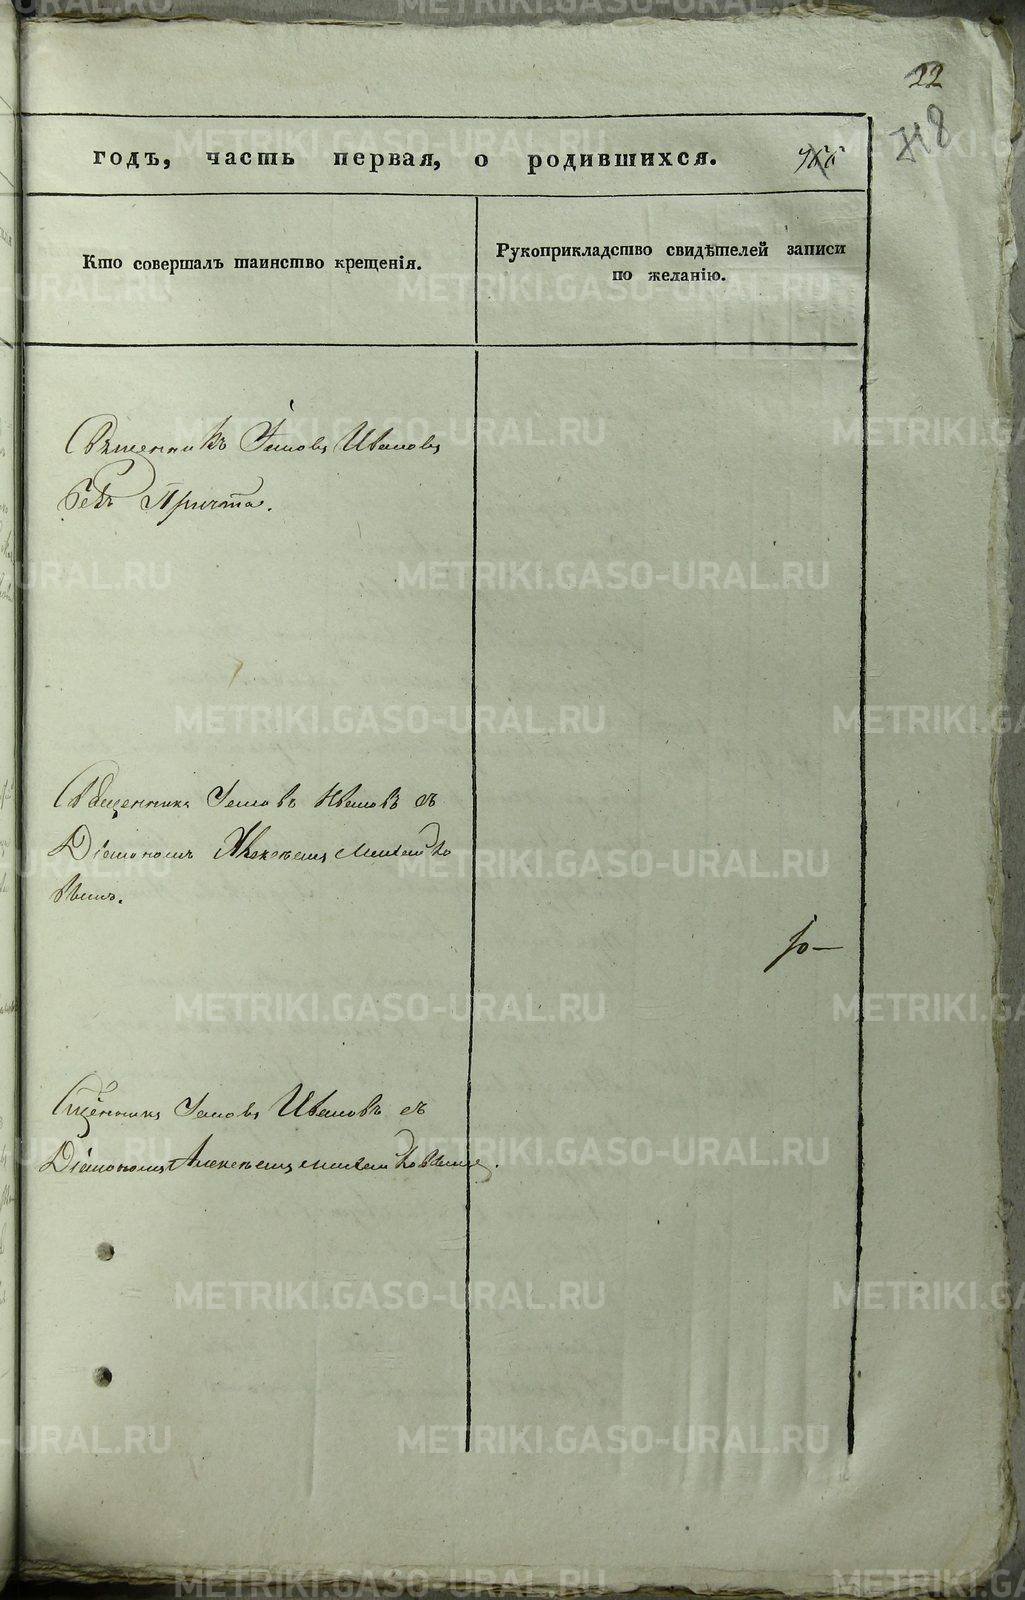 22
718
годъ, часть первая, о родившихся.
Кто совершалъ таинство крещенія.
Рукоприкладство свидѣтелей записи
по желанію.
Священникъ Іаковъ Ивановъ
безъ Причта.
Священникъ Іаковъ Ивановъ съ
Діакономъ Алексѣемъ
вымъ.
Сщенникъ Іаковъ Ивановъ съ
Діакономъ Алексѣемъ
METRIKI.GASO-URAL.RU